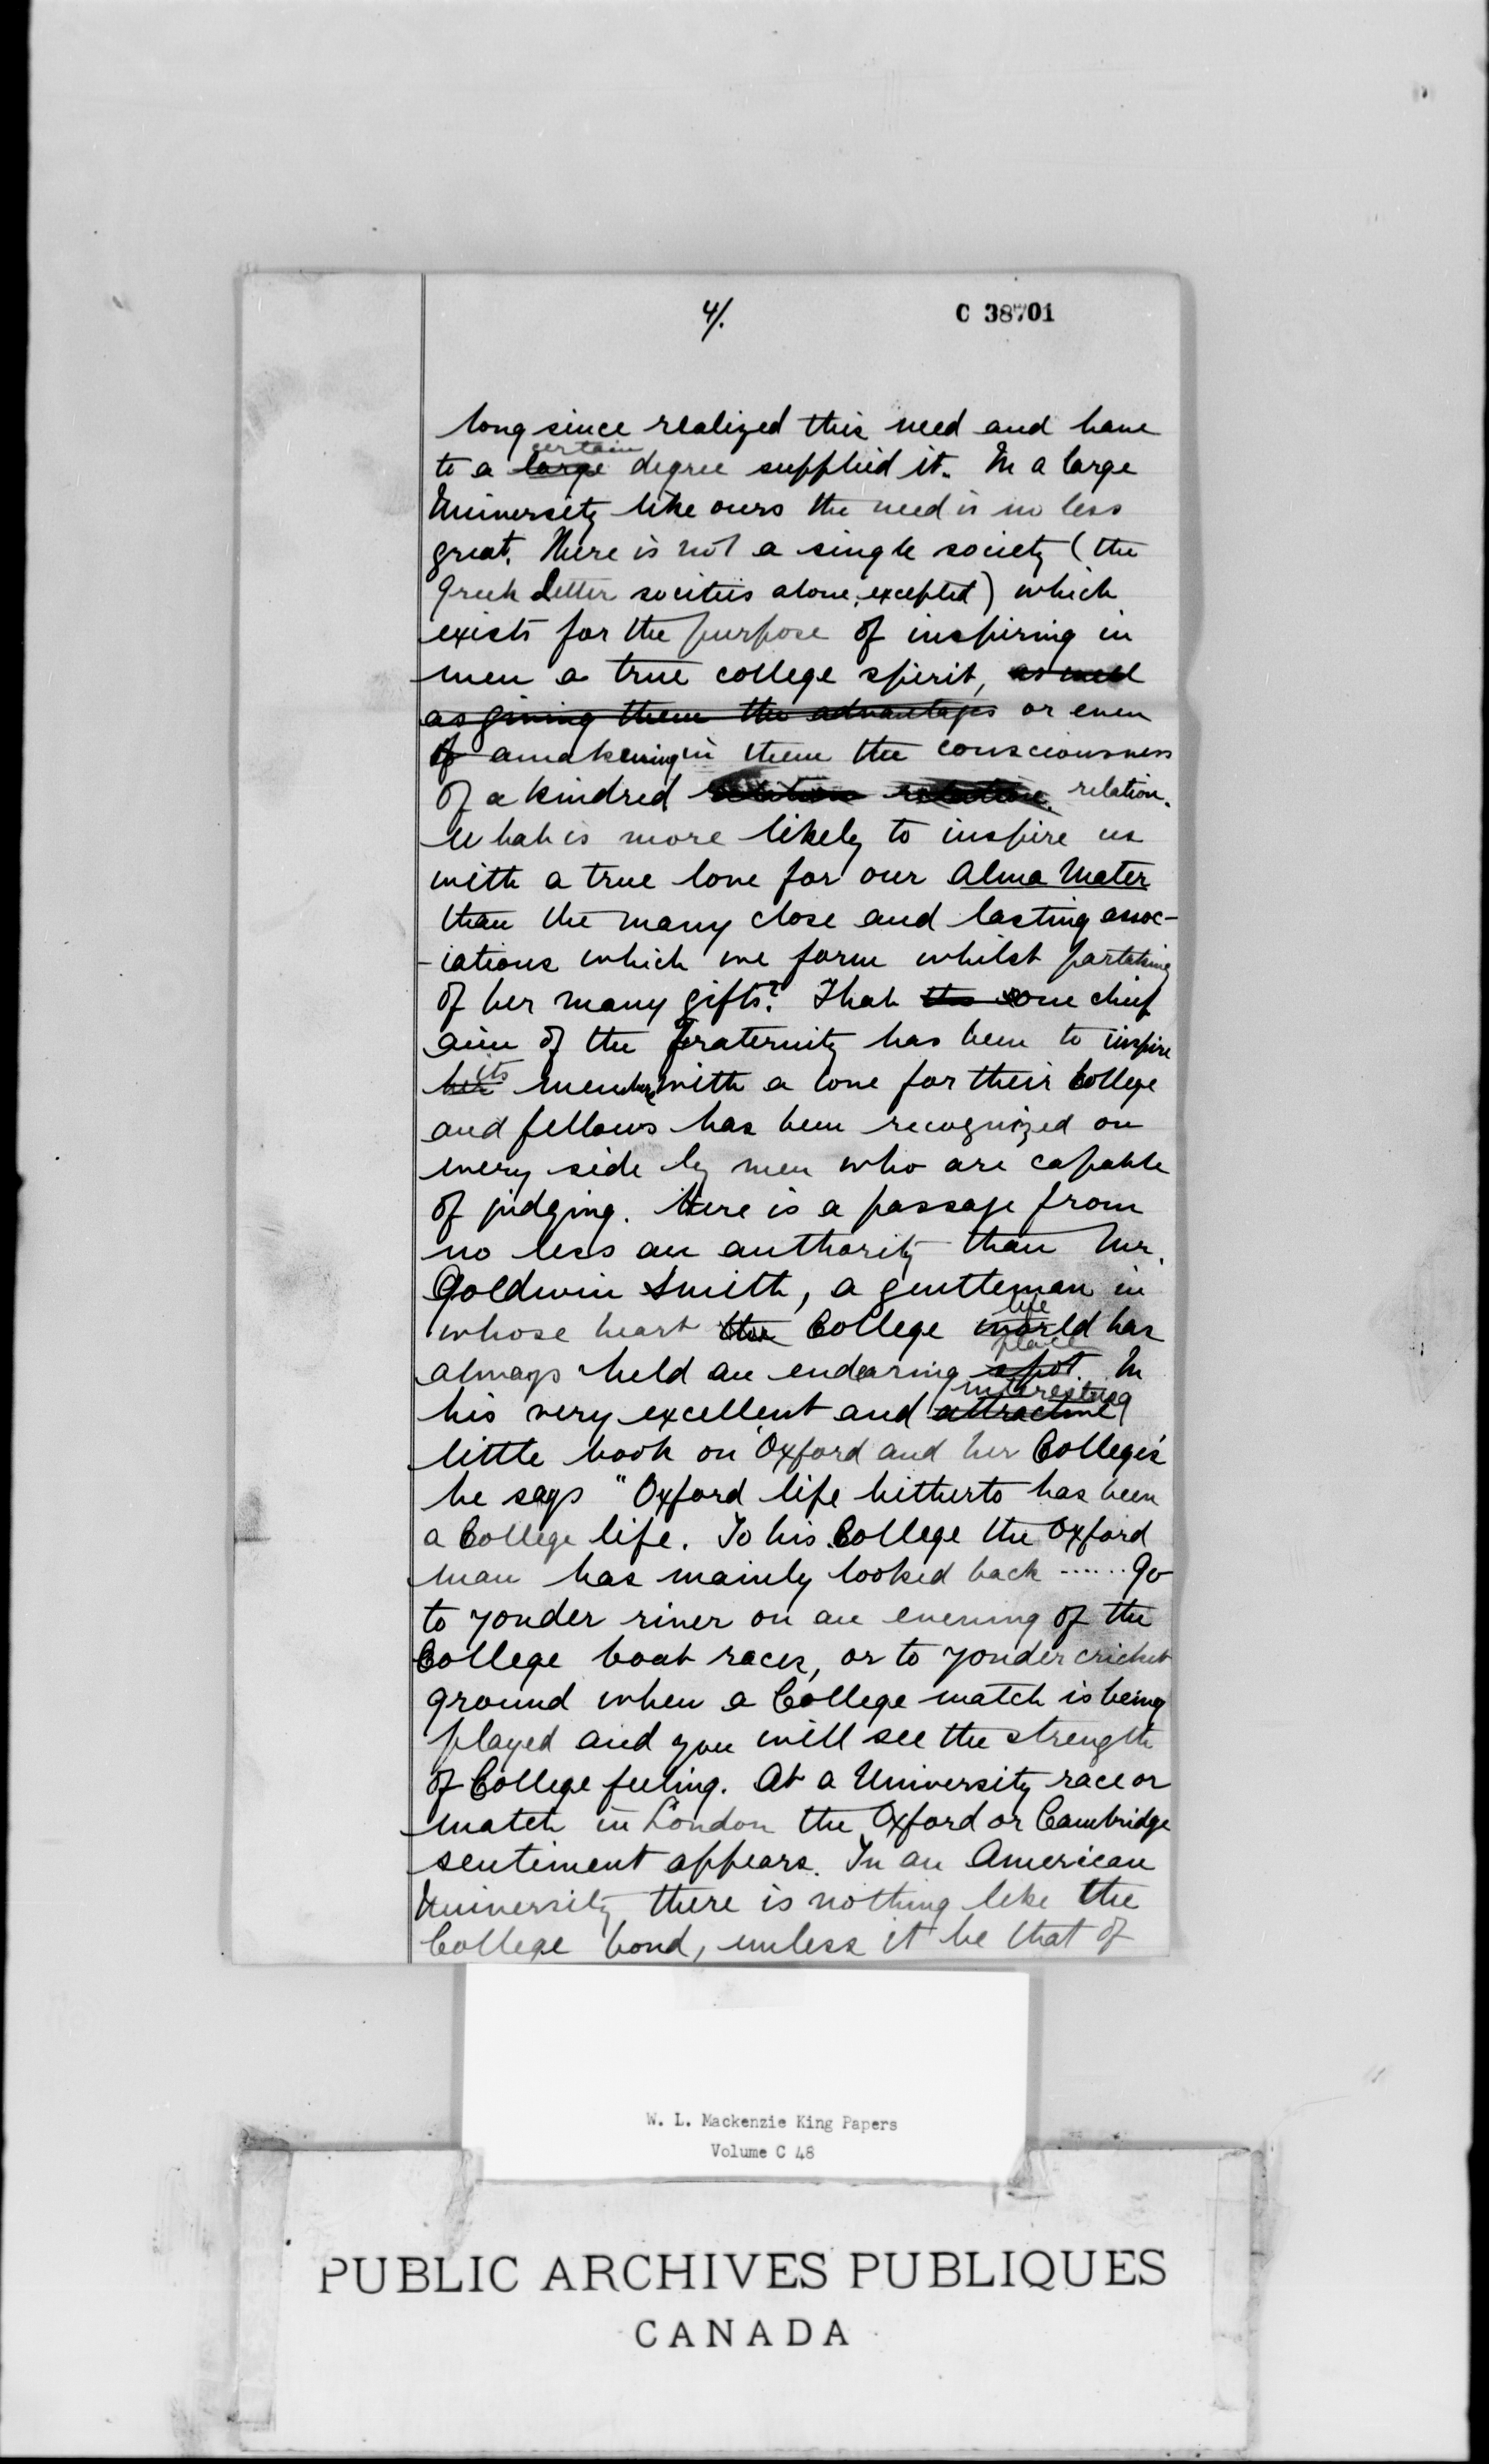 4/.
C 38701
long since realized this need and have
certain
to a large degree supplied it. In a large
University like ours the need is no less
great. There is not a single society (the
Greek Letter societies alone, excepted) which
exists for the purpose of inspiring in
men a true college spirit, as well
as giving them the advantages or even
of awakening in them the consciousness
of a kindred relation.
What is more likely to inspire us
with a true love for our Alma Mater
than the many close and lasting assoc-
-iations which we form whilst partaking
of her many gifts? That the one chief
aim of the fraternity has been to inspire
its
her members with a love for their College
and fellows has been recognized on
every side by men who are capable
of judging. Here is a passage from
no less an authority than Mr.
Goldwin Smith, a gentleman in
life
whose heart the College world has
place
always held an endearing spot. In
interesting
his very excellent and attractive
little book on 'Oxford and her Colleges'
he says "Oxford life hitherto has been
a College life. To his College the Oxford
man has mainly looked back ...... Go
to yonder river on an evening of the
College boat races, or to yonder cricket
ground when a College match is being
played and you will see the strength
of College feeling. At a University race or
match in London the Oxford or Cambridge
sentiment appears. In an American
University there is nothing like the
College bond, unless it be that of
W. L. Mackenzie King Papers
Volume C 48
PUBLIC ARCHIVES PUBLIQUES
CANADA